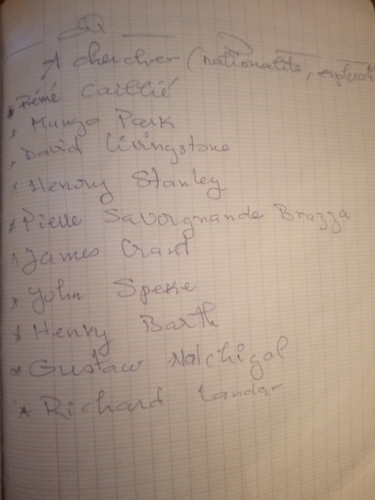 A chercher (nationalité, explorate
* Réné Caillié
* Mungo Park
* David Livingstone
* Henry Stanley
* Pierre Savorgnande Brazza
* James Grant
* John Speke
* Henry Barth
* Gustaw Natchigol
* Richard Landar